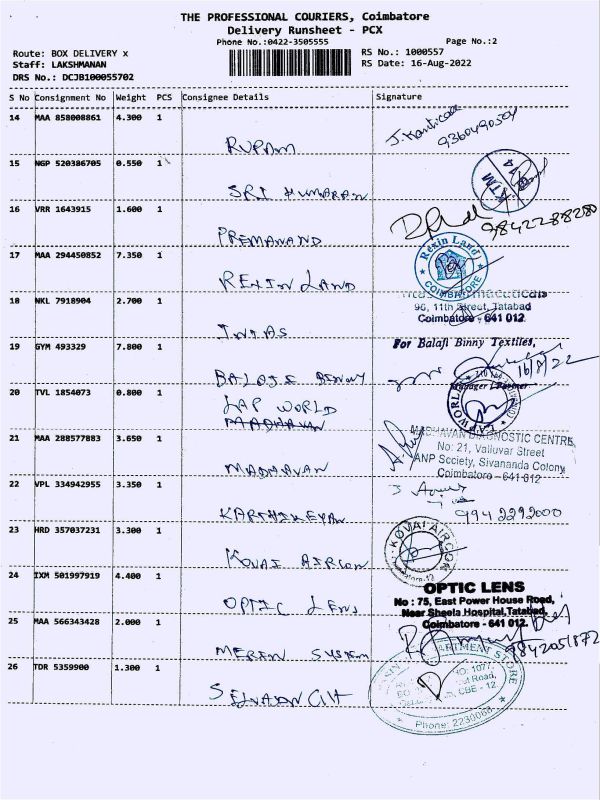 THE PROFESSIONAL COURIERS, Coimbatore
Delivery Runsheet - PCX
Phone No.:0422-3505555 Page No.:2
Route: BOX DELIVERY x RS No.: 1000557
Staff: LAKSHMANAN RS Date: 16-Aug-2022
DRS No.: DCJB100055702
S No Consignment No Weight PCS Consignee Details Signature
14 MAA 858008861 4.300 1
RUPAM
15 NGP 520386705 0.550 1
KTM
SRI KUMARAN
16 VRR 1643915 1.600 1
9842288280
PREMANAND
17 MAA 294450852 7.350 1 Rexin Land
COIMBATORE
REXIN LAND
18 NKL 7918904 2.700 1 96, 11th Street, Tatabad
Coimbatore - 641 012.
INTAS
19 GYM 493329 7.800 1 For Balaji Binny Textiles,
16/8/22
BALAJI BINNY Manager / Partner
20 TVL 1854073 0.800 1
LAP WORLD
LAP WORLD
21 MAA 288577883 3.650 1 MADHAVAN DIAGNOSTIC CENTRE
No: 21, Valluvar Street
ANP Society, Sivananda Colony
MADHAVAN Coimbatore - 641 012
22 VPL 334942955 3.350 1
9942292000
KARTHIKEYAN
23 HRD 357037231 3.300 1
KOVAI AIRCON
KOVAI AIRCON
24 IXM 501997919 4.400 1
OPTIC LENS
No : 75, East Power House Road,
OPTIC LENS Near Sheela Hospital, Tatabad,
25 MAA 566343428 2.000 1 Coimbatore - 641 012.
9842051872
MEREN SYSTEM
26 TDR 5359900 1.300 1
DEPARTMENT STORE
NO: 1077,
Road,
CBE - 12
Phone: 2230068